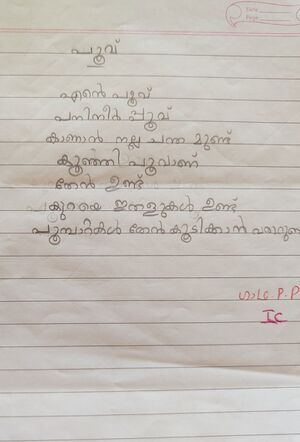 Date
Page
പൂവ്
എൻ്റെ പൂവ്
പനിനീർ പൂവ്
കാണാൻ നല്ല ചന്ത മുണ്ട്
കുഞ്ഞി പൂവാണ്
തേൻ ഉണ്ട്
കുറയെ ഇതളുകൾ ഉണ്ട്
പൂമ്പാറ്റകൾ തേൻ കുടിക്കാൻ വരാറുണ്ട്
P.P
IC